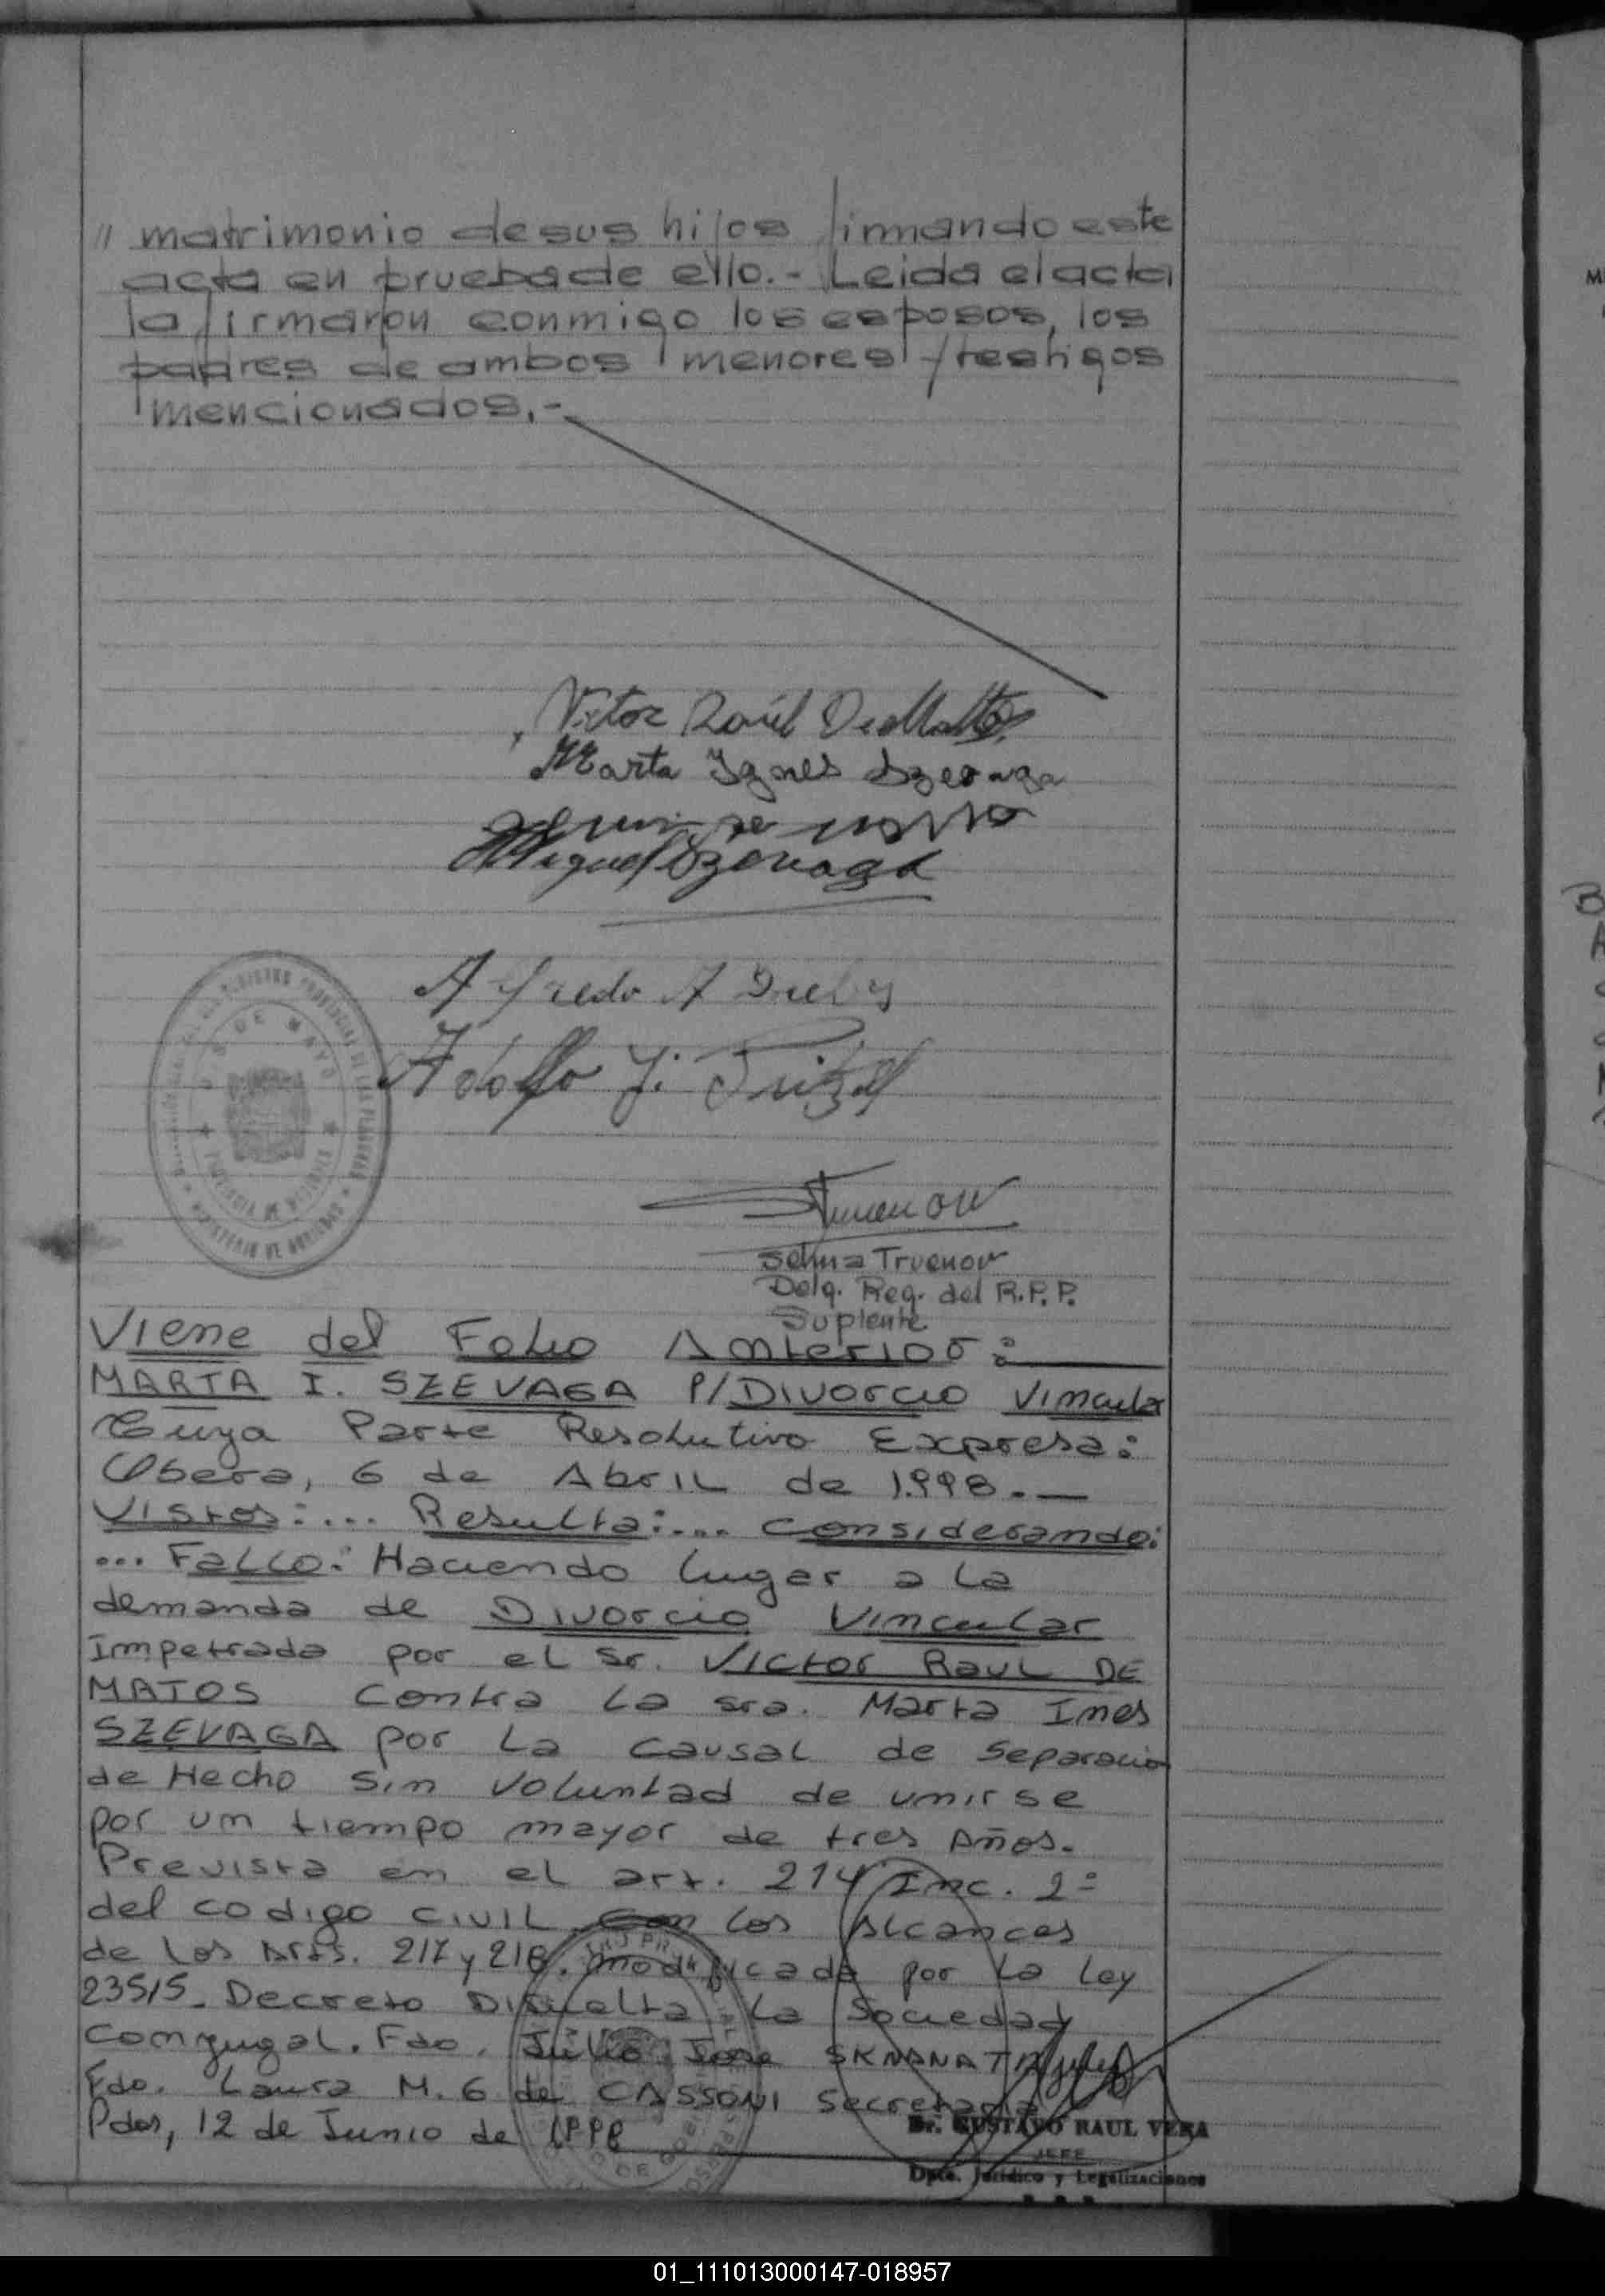 // matrimonio de sus hijos firmando este
acta en prueba de ello.- Leida el acta
la firmaron conmigo los esposos, los
padres de ambos menores y testigos
mencionados.-
Victor Raúl De Mattos
Marta Ygnes Szevaga
Miguel Szevaga
Alfredo A
Adolfo J.
25 DE MAYO
PROVINCIA DE MISIONES
MINISTERIO DE GOBIERNO
Truenow
Selma Truenow
Delg. Reg. del R.P.P.
Suplente
Viene del Folio Anterior:
MARTA I. SZEVAGA P/DIVORCIO Vincular
Cuya Parte Resolutivo Expresa:
Obera, 6 de Abril de 1.998.—
Vistos:... Resulta:... Considerando:
... Fallo: Haciendo lugar a la
demanda de Divorcio Vincular
Impetrada por el Sr. Victor Raul DE
MATOS Contra La sra. Marta Ines
SZEVAGA por La causal de Separacion
de Hecho Sin Voluntad de unirse
por un tiempo mayor de tres Años.
Prevista en el art. 214 Inc. 2º
del codigo civil con los Alcances
de los Arts. 217 y 218. modificada por la Ley
23515. Decreto Disuelta La Sociedad
Conyugal. Fdo. Julio Jose
Fdo. Laura M. G de CASSONI Secretaria
Pdas, 12 de Junio de 1998
Dr. GUSTAVO RAUL VERA
JEFE
Dpto. Jurídico y Legalizaciones
01_111013000147-018957